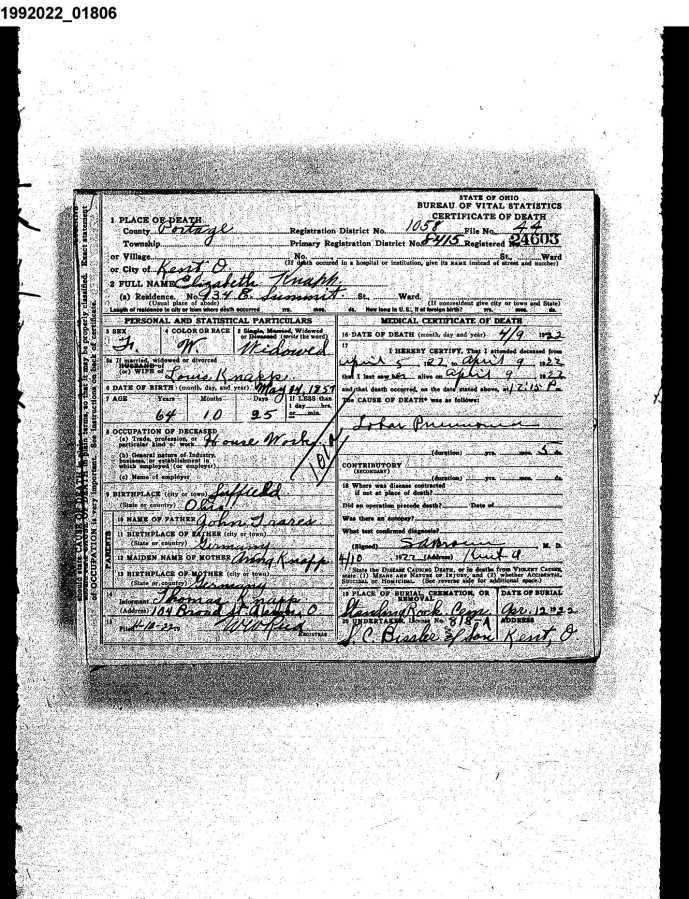 1992022_01806
STATE OF OHIO
BUREAU OF VITAL STATISTICS
CERTIFICATE OF DEATH
1 PLACE OF DEATH
County Portage Registration District No. 1058 File No. 44
Township Primary Registration District No. 8415 Registered 24603
or Village No. St., Ward
(If death occured in a hospital or institution, give its NAME instead of street and number)
or City of Kent O.
2 FULL NAME Elizabeth Knapp
(a) Residence. No. 934 E. Summit St., Ward.
(Usual place of abode) (If nonresident give city or town and State)
Length of residence in city or town where death occurred yrs. mos. ds. How long in U. S., if of foreign birth? yrs. mos. ds.
PERSONAL AND STATISTICAL PARTICULARS
3 SEX 4 COLOR OR RACE 5 Single, Married, Widowed or Divorced (write the word)
F. W. Widowed
5a If married, widowed or divorced
HUSBAND of
(or) WIFE of Louis Knapp
6 DATE OF BIRTH (month, day, and year) May 24, 1857
7 AGE Years Months Days If LESS than 1 day, hrs. or min.
64 10 25
8 OCCUPATION OF DECEASED
(a) Trade, profession, or particular kind of work House Work
(b) General nature of Industry, business, or establishment in which employed (or employer)
(c) Name of employer
9 BIRTHPLACE (city or town) Suffield
(State or country) Ohio
PARENTS
10 NAME OF FATHER John Trares
11 BIRTHPLACE OF FATHER (city or town)
(State or country) Germany
12 MAIDEN NAME OF MOTHER Anna Knapp
13 BIRTHPLACE OF MOTHER (city or town)
(State or country) Germany
Informant Thomas Knapp
(Address) 104 Broad St. O
15
Filed 4-10-22 W W Reed
REGISTRAR
MEDICAL CERTIFICATE OF DEATH
16 DATE OF DEATH (month, day and year) 4/9 1922
17
I HEREBY CERTIFY, That I attended deceased from
April 5, 22, to April 9, 1922
that I last saw her alive on April 9, 1922
and that death occurred, on the date stated above, at 12:15 P.
The CAUSE OF DEATH* was as follows:
Lobar Pneumonia
(duration) yrs. mos. 5 ds.
CONTRIBUTORY
(SECONDARY)
(duration) yrs. mos. ds.
18 Where was disease contracted
if not at place of death?
Did an operation precede death? Date of
Was there an autopsy?
What test confirmed diagnosis?
(Signed) M. D.
4/10 1922 (Address) Kent O
*State the DISEASE CAUSING DEATH, or in deaths from VIOLENT CAUSES, state (1) MEANS AND NATURE OF INJURY, and (2) whether ACCIDENTAL, SUICIDAL or HOMICIDAL. (See reverse side for additional space.)
19 PLACE OF BURIAL, CREMATION, OR REMOVAL DATE OF BURIAL
Standing Rock Cem Apr. 12 1922
20 UNDERTAKER, License No. 818-A ADDRESS
S. C. Bissler & Son Kent, O